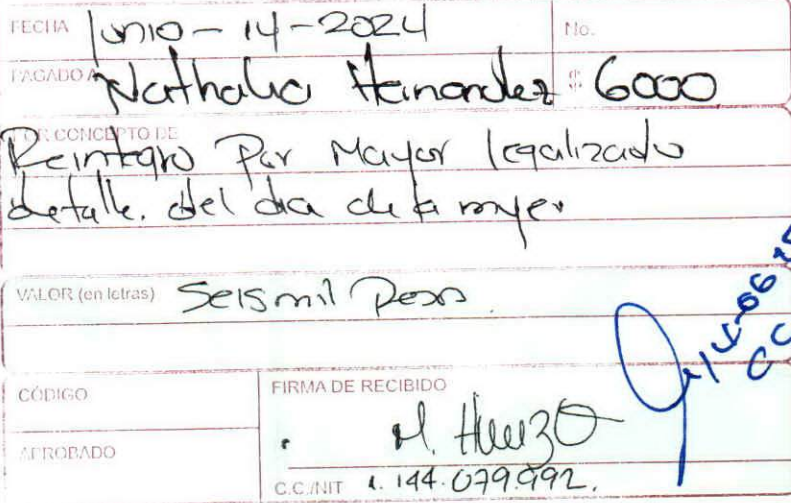 FECHA Junio - 14 - 2024 No.
PAGADO A Nathalia Hernandez $ 6000
POR CONCEPTO DE
Reintegro Por Mayor legalizado
detalle. del dia de la mujer
VALOR (en letras) Seis mil Pesos.
CÓDIGO FIRMA DE RECIBIDO
APROBADO
C.C./NIT 1.144.079.992.